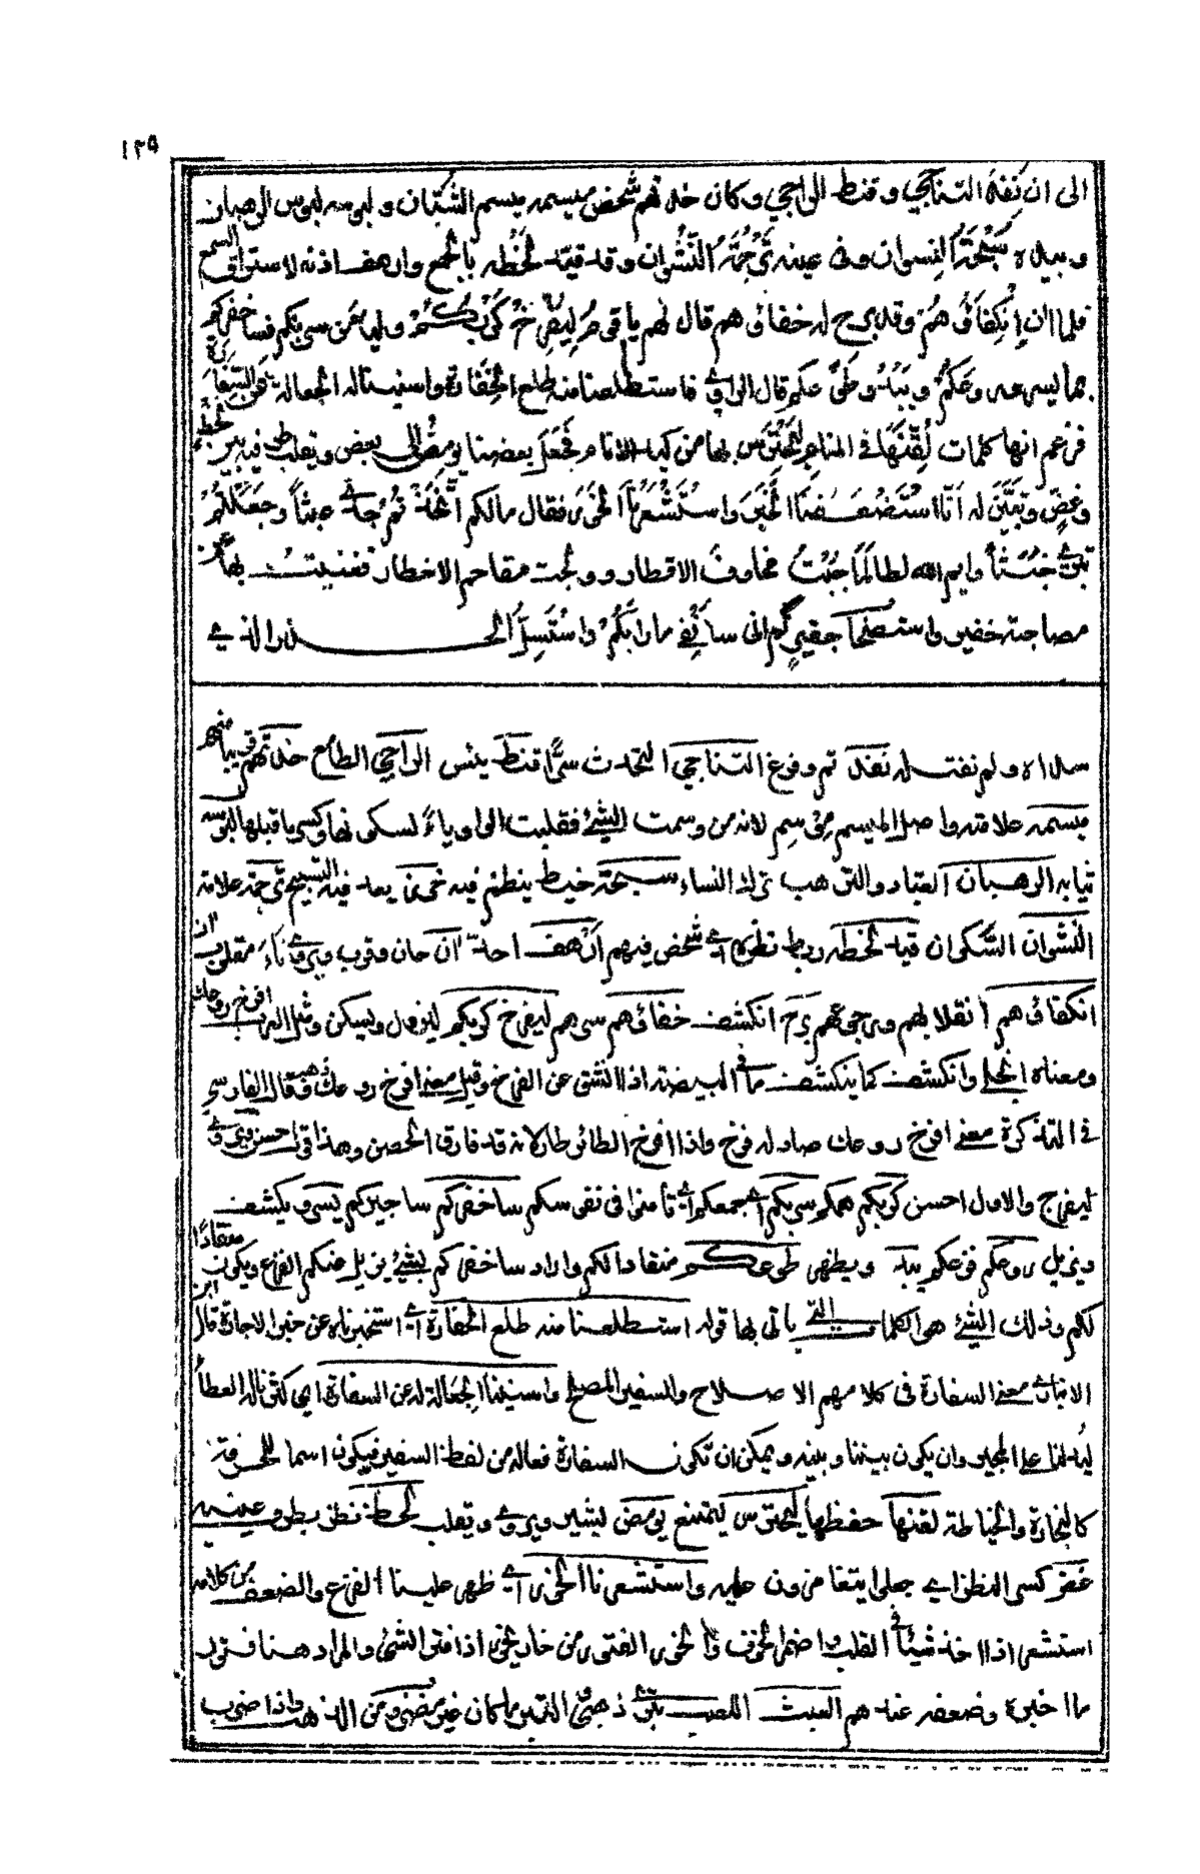 ١٢٩
الى ان نَفِدَ التناجي وقنط الراجي وكان حذتهم شخص ميسمه ميسم الشبّان ولبوسه لبوس الرهبان
وبيده سُبْحَةُ النسوان وفى عينه تَرْجَمَةُ النَّشْوان وقد قيّد لحظه بالجمع وارهف اذنه لاستراق السمع
فلما ان اِنْكِفَاؤُهُمْ وقد برح له خفاؤهم قال لهم ياقوم لِيُفْرِخْ كَرْبُكُمْ وليامن سربكم فساخفركم
بما يسرو روعَكُمْ ويَبْدُو طَوْعكم قال الراوي فاستطلعنا منه طلع الخِفَارَة واسنينا له الجعالة عن السِّفَارَة
فزعم انها كلمات لُقِّنَهَا فى المنام ليَحْتَرِس بها من كيد الانام فَجَعَلَ بعضنا يُومِضُ الى بعض ويقلب طرفيه بين لحظ
وغضٍّ وتَبَيَّنَ له اَنّا اسْتَضْعَفنَا الخَبَرَ واسْتَشْعَرْنَا الخَوَرَ فقال مالكم اتَّخَذْتُمْ جدّي عبثاً وجَعَلْتُمْ
تبري خَبَثاً وايم الله لطالَمَا جُبْتُ مخاوفَ الاقطار وولجت مقاحم الاخطار فغنيت بها عن
مصاحبة خفير واستصحاب جفير ثم انى سأَنْفِي مارابَكُمْ واسْتَسِلُّ الحذر الذي

سداه ولم نفتله نفد تم وفرغ التناجي التحدث سرًّا قنط يئس الراجي الطامع حذتهم قريبا منهم
ميسمه علامته واصل الميسم مِوْسِم لانه من وسمت الشئ فقلبت الواو ياءً لسكونها وكسر ماقبلها لبوسه
ثيابه الرهبان العباد والترهب ترك النساء سبحة خيط ينظم فيه خرز يعد فيه التسبيح ترجمة علامة
النشوان السَّكران قيد لحظه ربط نظره اي شخص فيهم اَرْهف احدّ ان حان وقرب ويروى نَاءَ مقلوب ان
انكفاؤهم انقلابهم ورجوعهم برح انكشف خفاؤهم سرهم ليفرخ كربكم ليزول ويسكن ومثله افرخ روعك
ومعناه انجلى وانكشف كما ينكشف ما فى البيضة اذا انشق عن الفرخ وقيل معنى افرخ روعك ذهب وقال الفارسي
فى التذكرة معنى افرخ روعك صار له فرخ واذا افرخ الطائر طار لانه قد فارق الحصن وهذا قول احسن ويروى
ليفرج والاول احسن كربكم همكم سربكم جمعكم اي تامنوا فى نفوسكم ساخفركم ساجيركم يسرو يكشف
ويزيل روعكم فزعكم يبدو ويظهر طوعكم منقادا لكم واراد ساخفركم بشئ يزيل عنكم الفزع ويكون منقادًا
لكم وذلك الشئ هو الكلمات التي ياتى بها قوله استطلعنا منه طلع الخفارة اي استخبرناه عن خبر الاجارة قال ابن
الانباري معنى السفارة فى كلامهم الاصلاح والسفير المصلح واسنينا الجعالة له عن السفارة اي كثرنا له العطأ
ليدلنا على الخير وان يكون بيننا وبينه ويمكن ان تكون السفارة فعاله من لفظ السفير فيكون اسما للحرفة
كالنجارة والخياطة لقنها حفظها ليحترس ليمتنع يومض ليشير ويروى ويقلب لحظ نظر بطرف عينه
غض كسر النظر اي جعلوا يتغامزون عليه واستشعرنا الخور اي ظهر علينا الفزع والضعف من كلامه
استشعر اذا اخذ شيئاً فى القلب واضمر الخوف والخور الفتور من خار يخور اذا فتر الشئ والمراد هنا فتور
ما اخبره وضعفه عندهم العبث اللعب تبري ذهبي التبر ماكان غير مضروب من الذهب واذا ضرب